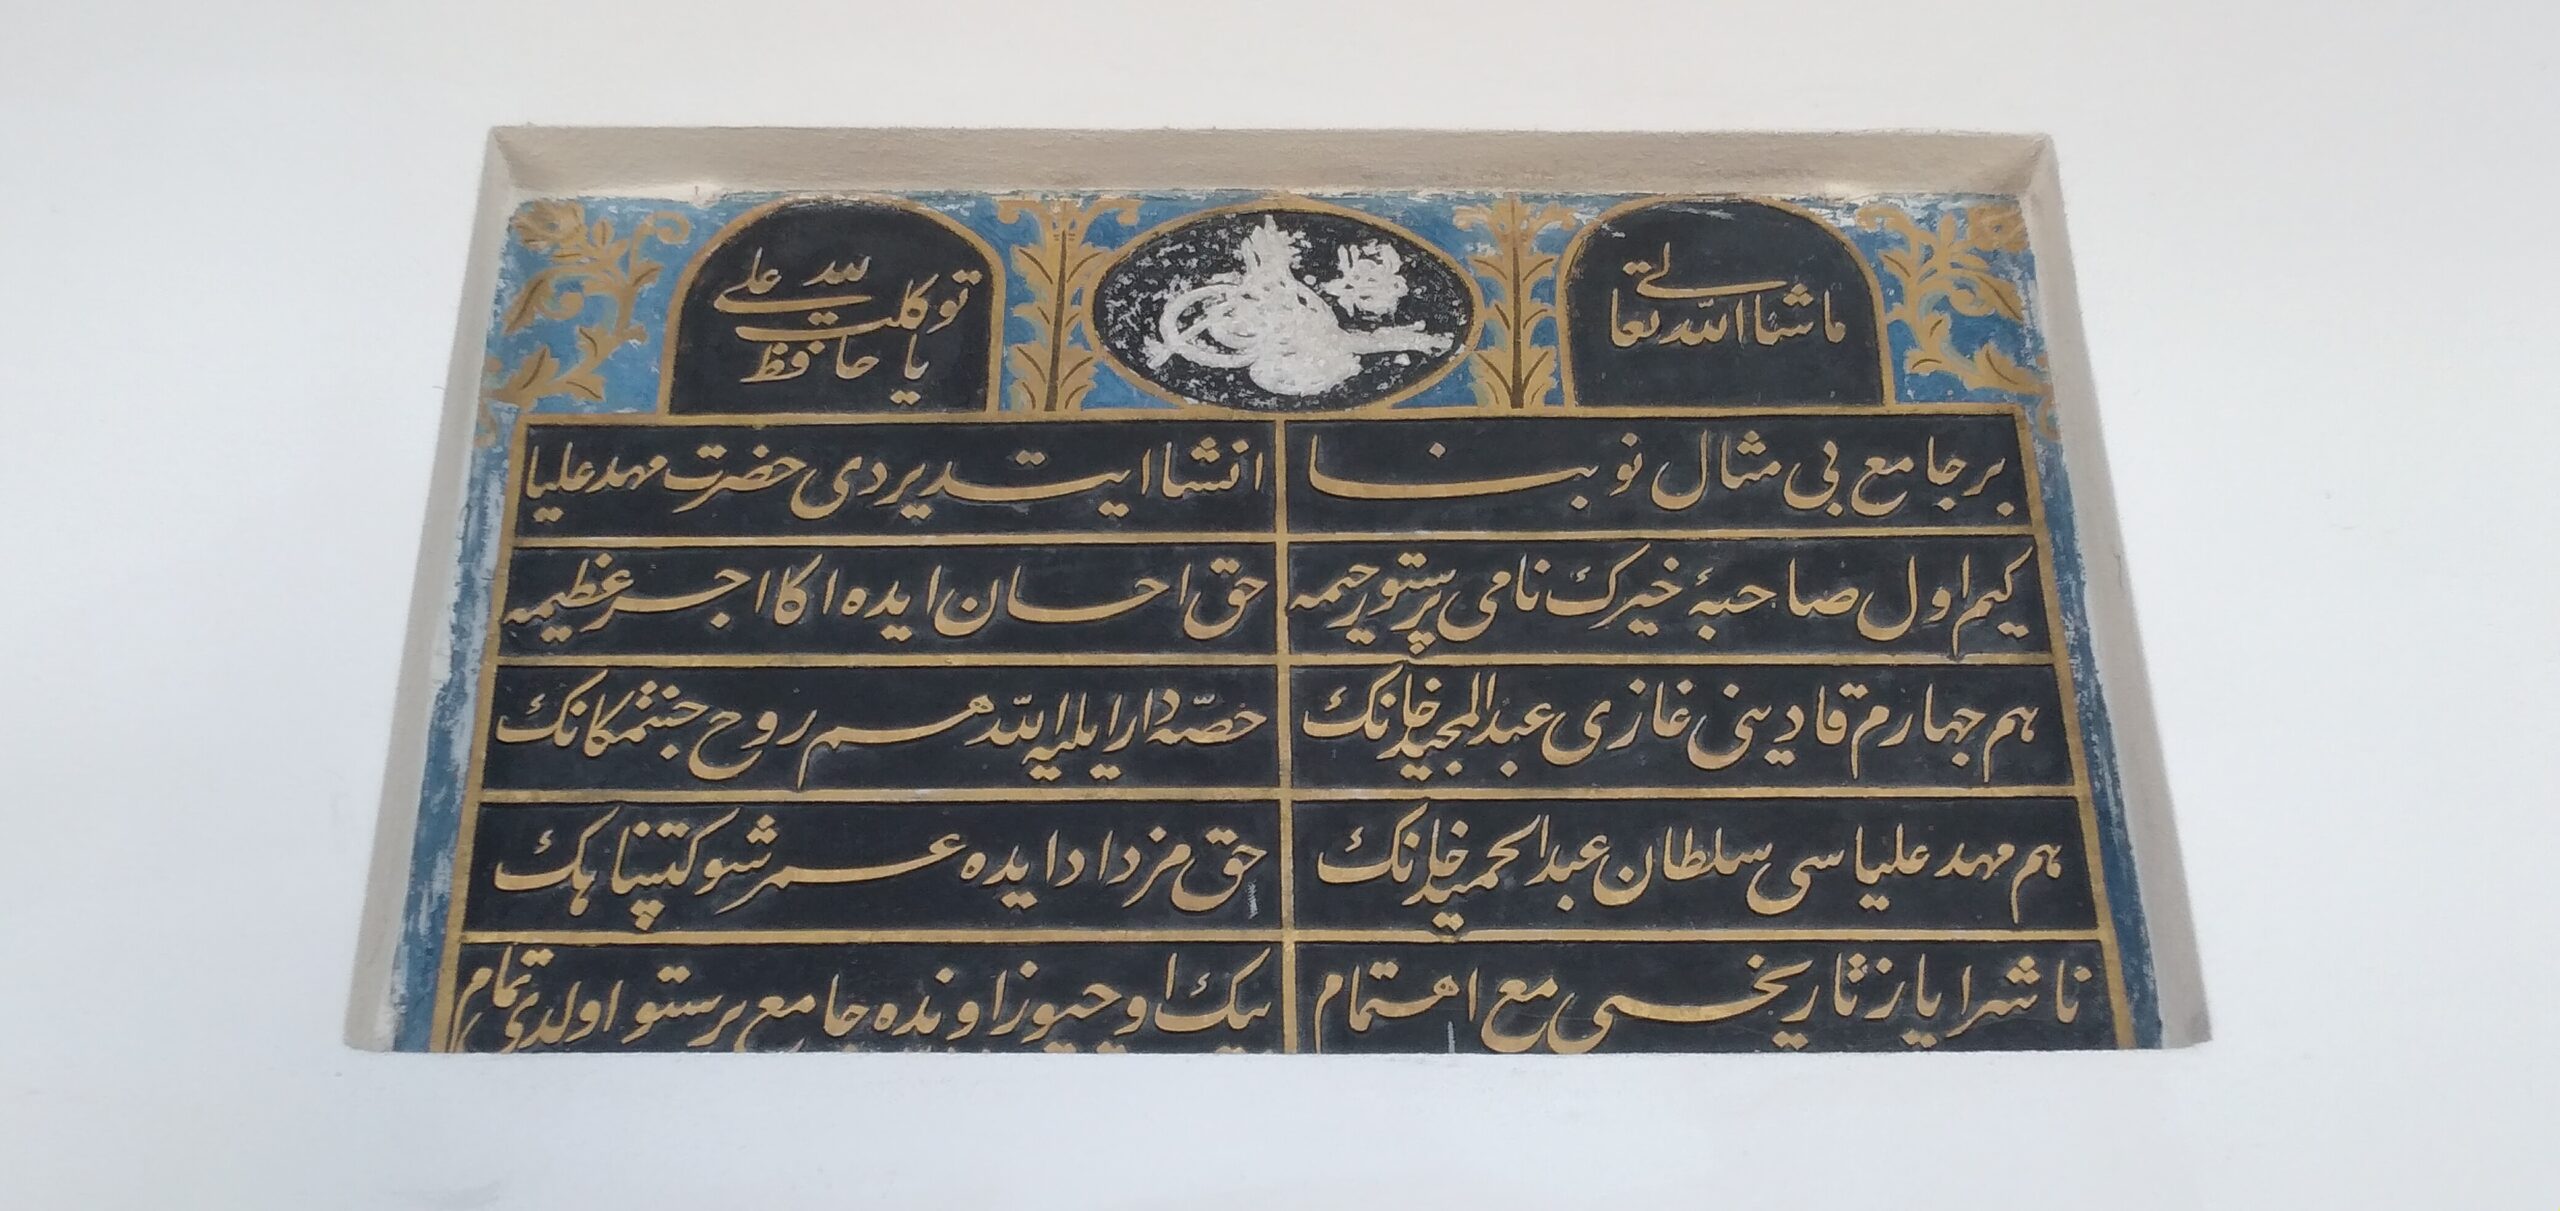 ما شا الله تعالى
توكلت على الله
يا حافظ
بر جامع بى مثال نو بنا
انشا ايتديردى حضرت مهد عليا
كيم اول صاحبهٔ خيرك نامى پرستو رحيمه
حق احسان ايده اكا اجر عظيمه
هم جهارم قادينى غازى عبدالمجيد خانك
حصّه دار ايليه الله هم روح جنتمكانك
هم مهد علياسى سلطان عبدالحميد خانك
حق مزداد ايده عمر شوكتپناهك
ناشرا ياز تاريخسى مع اهتمام
بيك اوچيوز اونده جامع پرستو اولدى تمام